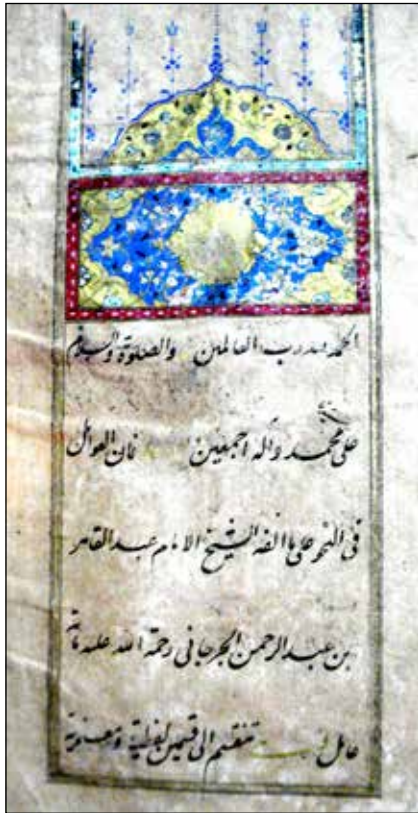 الحمد لله رب العالمين والصلوة والسلام
على محمد وآله اجمعين فان العوامل
فى النحو على ما الفه الشيخ الامام عبد القاهر
بن عبد الرحمن الجرجانى رحمة الله عليه مائة
عامل تنقسم الى قسمين لفظية ومعنوية